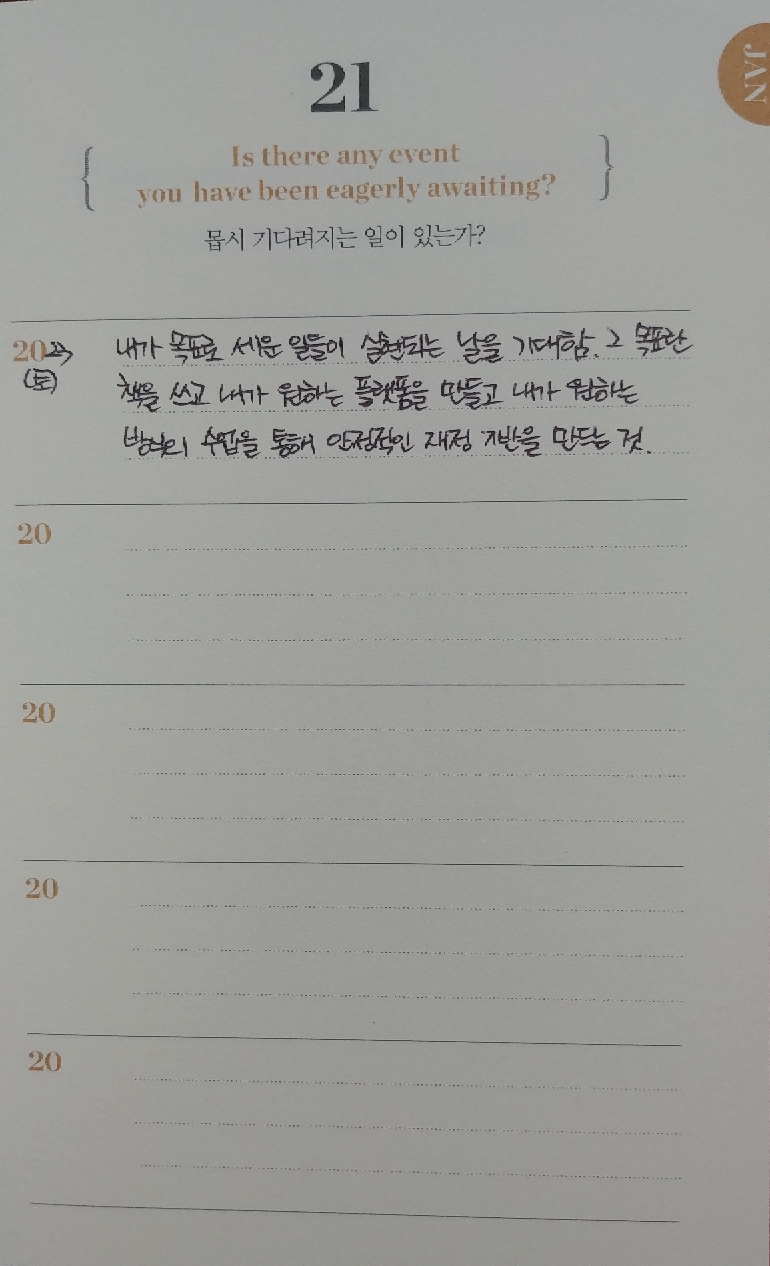 JAN
21
{ Is there any event
you have been eagerly awaiting? }
몹시 기다려지는 일이 있는가?
2023 내가 목표로 세운 일들이 실현되는 날을 기대함. 그 목표란
(토) 책을 쓰고 내가 원하는 플랫폼을 만들고 내가 원하는
방식의 수업을 통해 안정적인 재정 기반을 만드는 것.
20
20
20
20